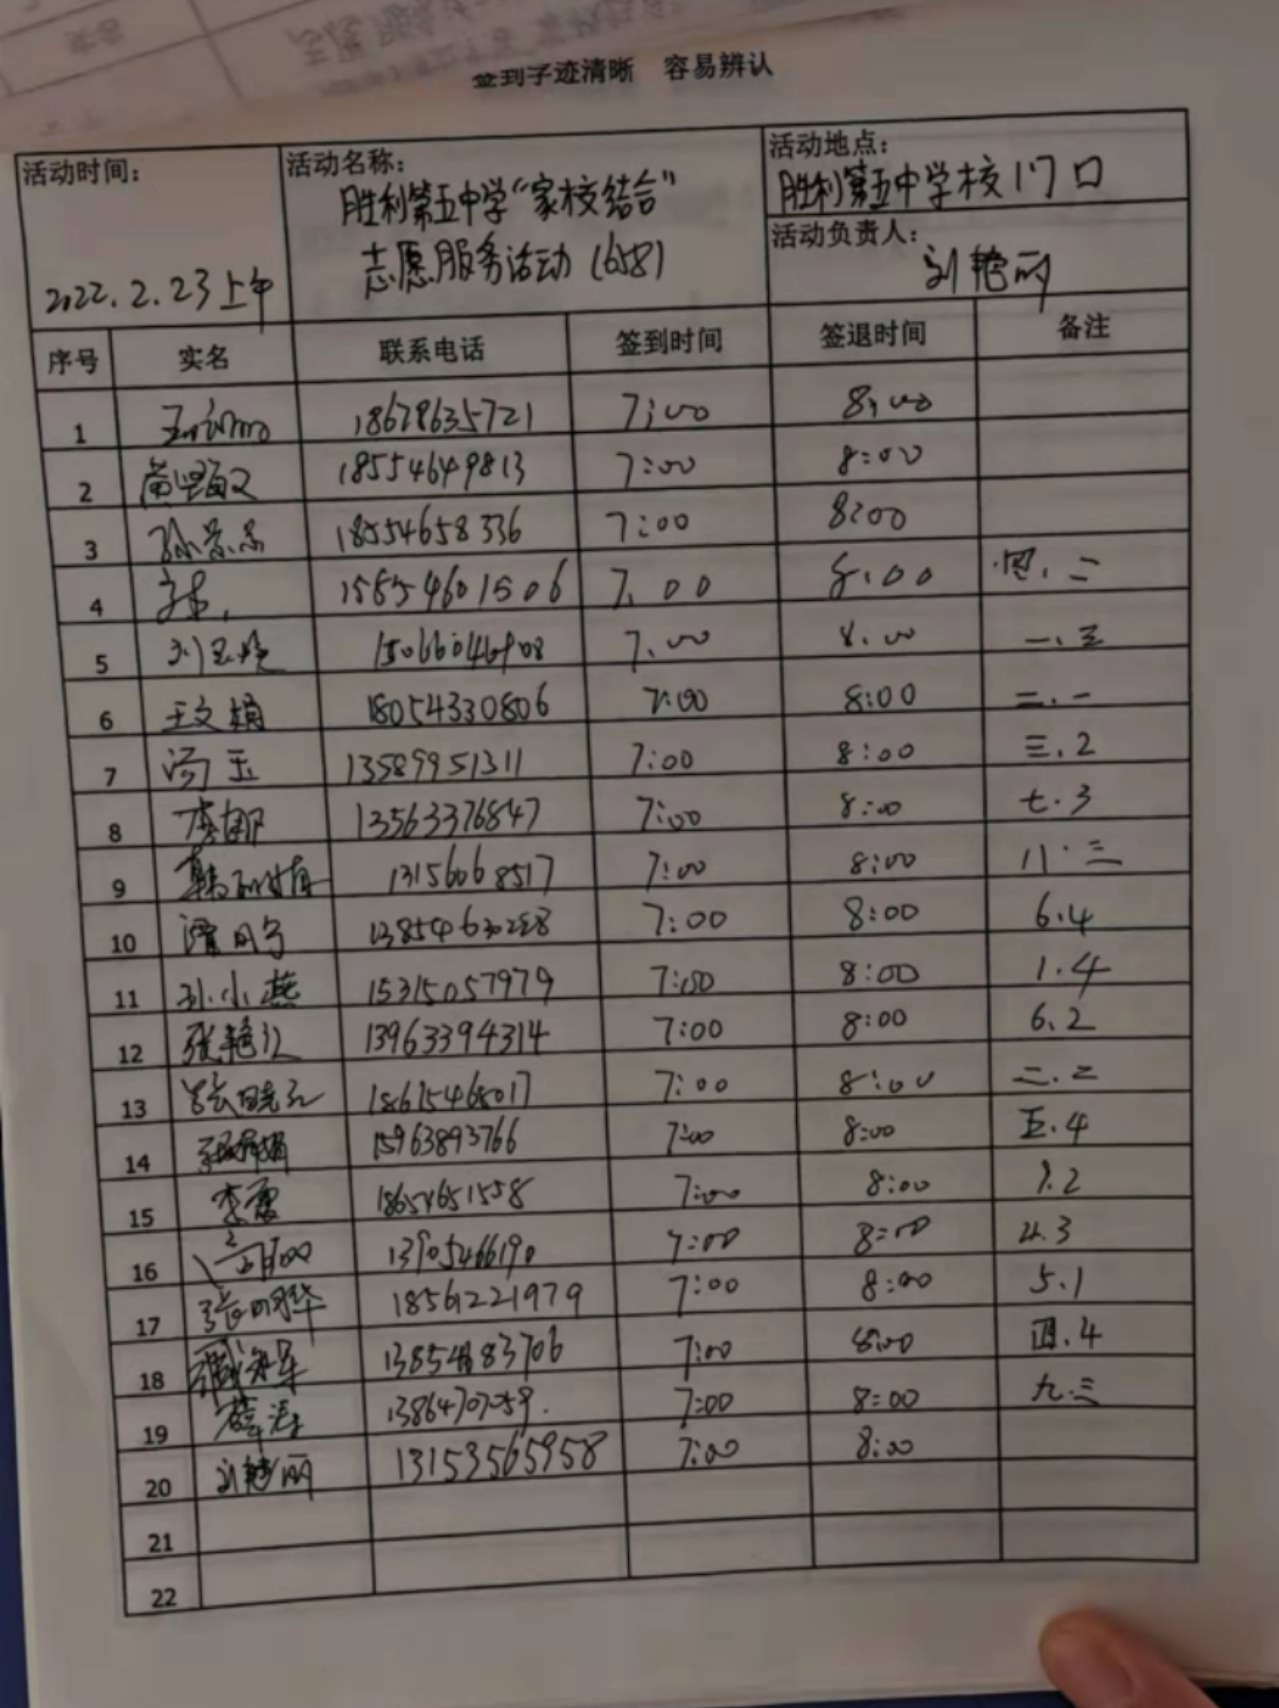 签到字迹清晰 容易辨认
活动时间：
2022.2.23上午
活动名称：
胜利第五中学“家校结合”
志愿服务活动（658）
活动地点：
胜利第五中学校门口
活动负责人：
刘艳丽
序号 实名 联系电话 签到时间 签退时间 备注
1 18678635721 7:00 8:00
2 18554649813 7:00 8:00
3 18554658336 7:00 8:00
4 15854601506 7:00 8:00 四.二
5 7:00 8:00 一.三
6 王文娟 18054330806 7:00 8:00 二.一
7 汤玉 13589951311 7:00 8:00 三.2
8 李娜 13563376847 7:00 8:00 七.3
9 13156068517 7:00 8:00 八.三
10 7:00 8:00 6.4
11 孙小燕 15315057979 7:00 8:00 1.4
12 13963394314 7:00 8:00 6.2
13 7:00 8:00 二.二
14 15963893766 7:00 8:00 五.4
15 李霞 18654651558 7:00 8:00 1.2
16 13905466190 7:00 8:00 4.3
17 张明华 18561221979 7:00 8:00 5.1
18 7:00 8:00 四.4
19 薛涛 7:00 8:00 九.三
20 刘艳丽 13153565958 7:00 8:00
21
22